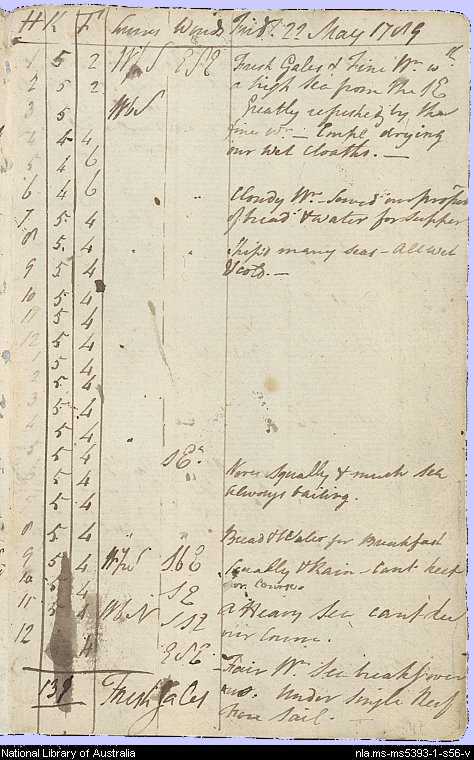 H K F Courses Winds Frid.y 22 May 1789
1 5 2 WbS ESE Fresh Gales & Fine Wr. wth
2 5 2 a high sea from the SE
3 5 WbS Greatly refreshed by the
4 4 4 fine Wr. — Empl. drying
5 4 6 our wet cloaths. —
6 4 6 " " Cloudy Wr. Served our propn.
7 5 4 of bread & water for supper
8 5 4 " " Ship'd many seas — All wet
9 5 4 & cold. —
10 5 4
11 5 4
12 5 4
1 5 4
2 5 4
3 5 4
4 5 4
5 5 4 " SE. More Squally & much sea
6 5 4 always bailing.
7 5 4
8 5 4 Bread & Water for Breakfast
9 5 4 SbE Squally & Rain — Cant keep
10 5 4 SE our course.
11 5 4 WbN SSE A Heavy Sea cant lie
12 4 ESE our course.
139 Fresh Gales Fair Wr. Sea breaks over
us. Under Single Reef
Fore Sail.
National Library of Australia nla.ms-ms5393-1-s56-v